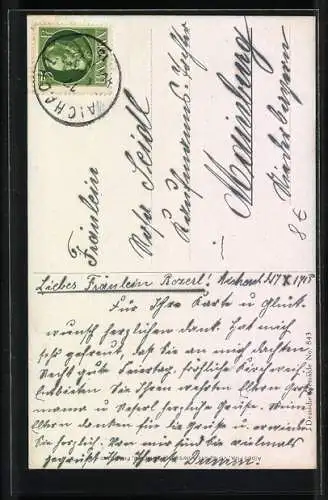 AICHACH
Fräulein
Rosa Seidl
Kaufmanns-Tochter
Mainburg
Niederbayern
Liebes Fräulein Rozerl! Aichach d. 17 X 1918
Für Ihre Karte u Glück-
wunsch herzlichen Dank. Hat mich
sehr gefreut, daß Sie an mich dachten.
Recht gute Feiertag, fröhliche Kirchweih
Entbieten Sie Ihrer werten Eltern Groß-
mama u herzliche Grüße. Meine
Eltern danken für die Grüße u erwiedern
Sie herzlich. Von mir sind Sie vielmals
gegrüßt Ihre Therese
No. 843